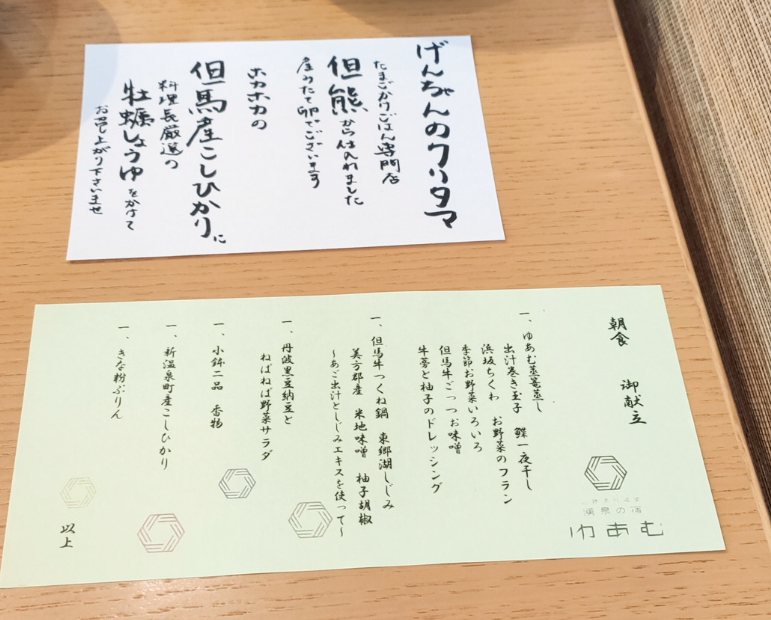 げんちゃんのクリタマ
たまごかけごはん専門店
但熊から仕入れました
産みたて卵でございます
ホカホカの
但馬産こしひかりに
料理長厳選の
牡蠣しょうゆをかけて
お召し上がり下さいませ
朝食 御献立
湯村温泉
湧恵の宿
ゆあむ
一、ゆあむ蒸篭蒸し
出汁巻き玉子 鰈一夜干し
浜坂ちくわ お野菜のフラン
季節お野菜いろいろ
但馬牛ごっつお味噌
牛蒡と柚子のドレッシング
一、但馬牛つくね鍋 東郷湖しじみ
美方郡産 米地味噌 柚子胡椒
～あご出汁としじみエキスを使って～
一、丹波黒豆納豆と
ねばねば野菜サラダ
一、小鉢二品 香物
一、新温泉町産こしひかり
一、きな粉ぷりん
以上